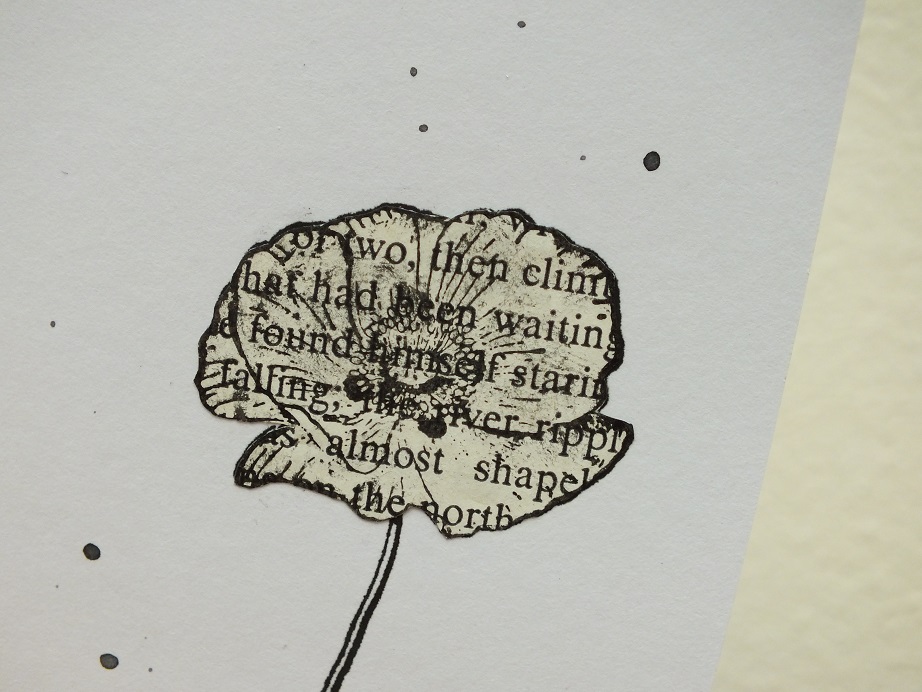 or two, then clim
hat had been waitin
found himself starin
falling; the river rippl
s almost shapel
on the north